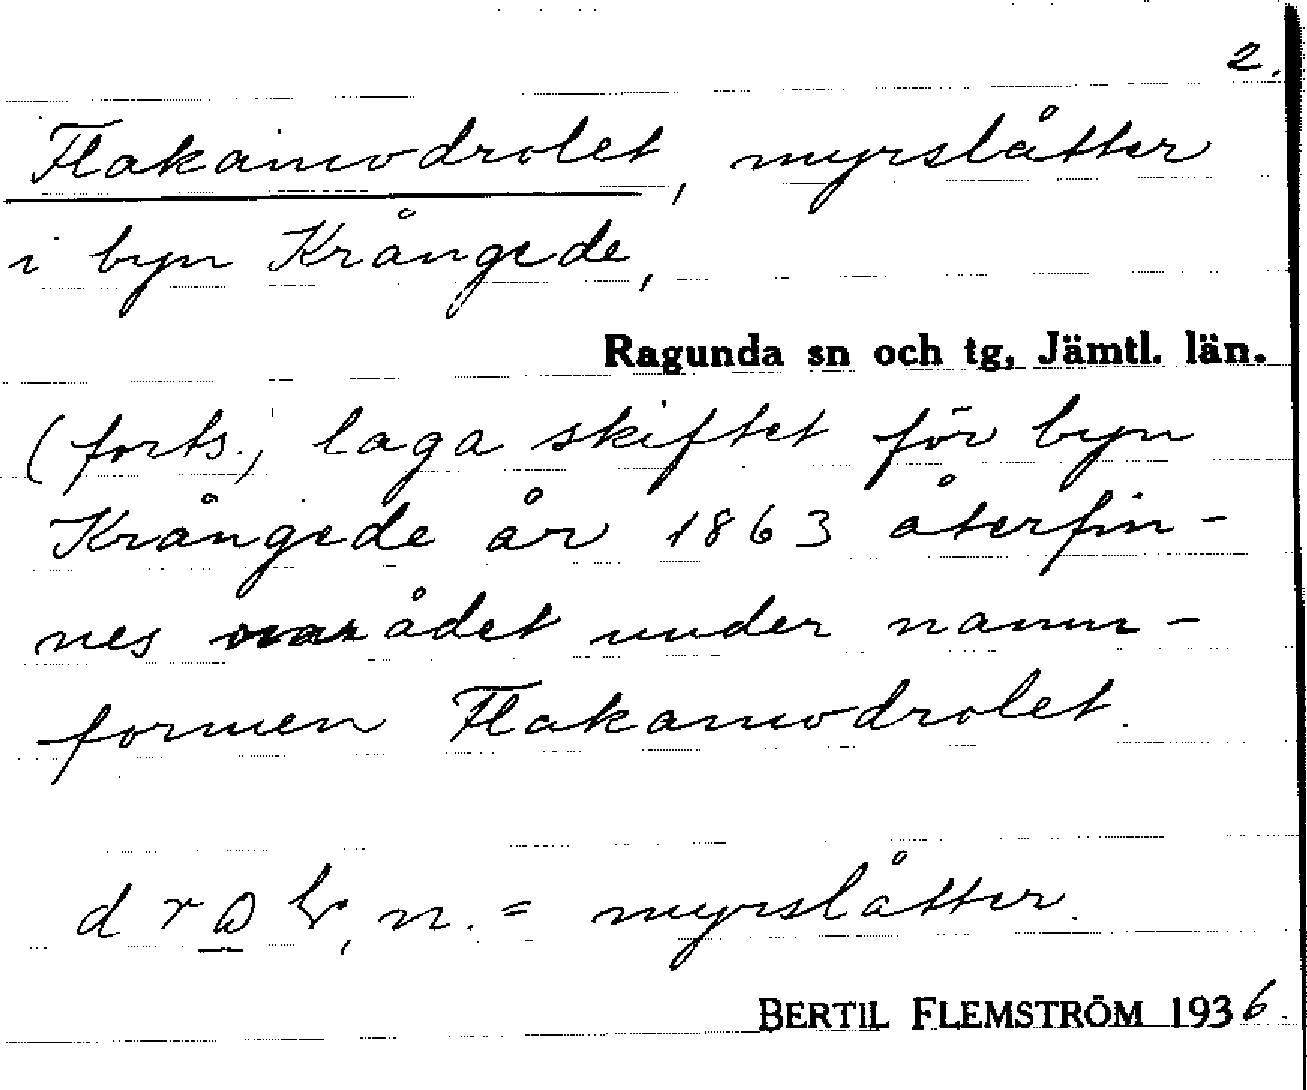 2.
Flakamodrolet, myrslåtter
i byn Krångede,
Ragunda sn och tg, Jämtl. län.
(forts.) laga skiftet för byn
Krångede år 1863 återfin-
nes området under namn-
formen Flakamodrolet.
n. = myrslåtter.
BERTIL FLEMSTRÖM 1936.